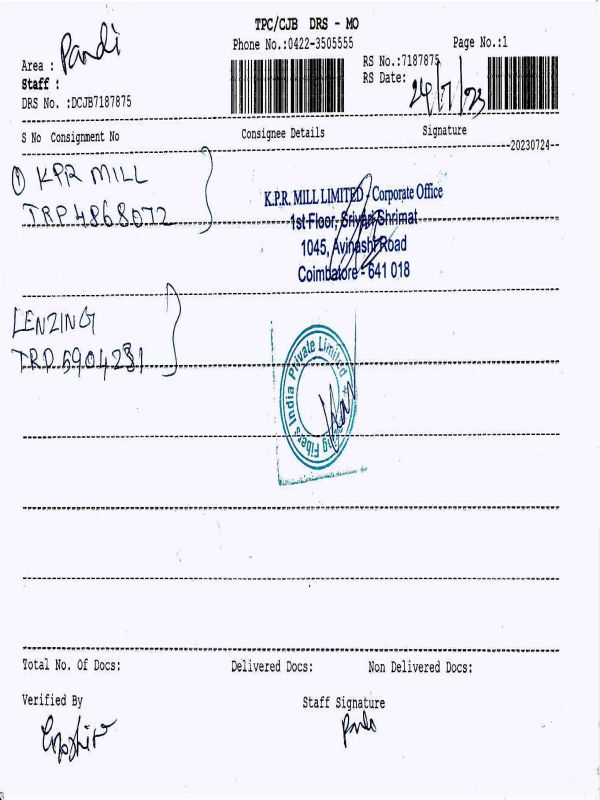 TPC/CJB DRS - MO
Phone No.:0422-3505555
Page No.:1
Area : Pandi
Staff :
DRS No. :DCJB7187875
RS No.:7187875
RS Date: 24/7/23
S No Consignment No Consignee Details Signature
20230724
① KPR MILL
TRP4868072
K.P.R. MILL LIMITED - Corporate Office
1st Floor, Srivari Shrimat
1045, Avinashi Road
Coimbatore - 641 018
LENZING
TRD5904281
ng Fibers India Private Limited
Total No. Of Docs: Delivered Docs: Non Delivered Docs:
Verified By Staff Signature